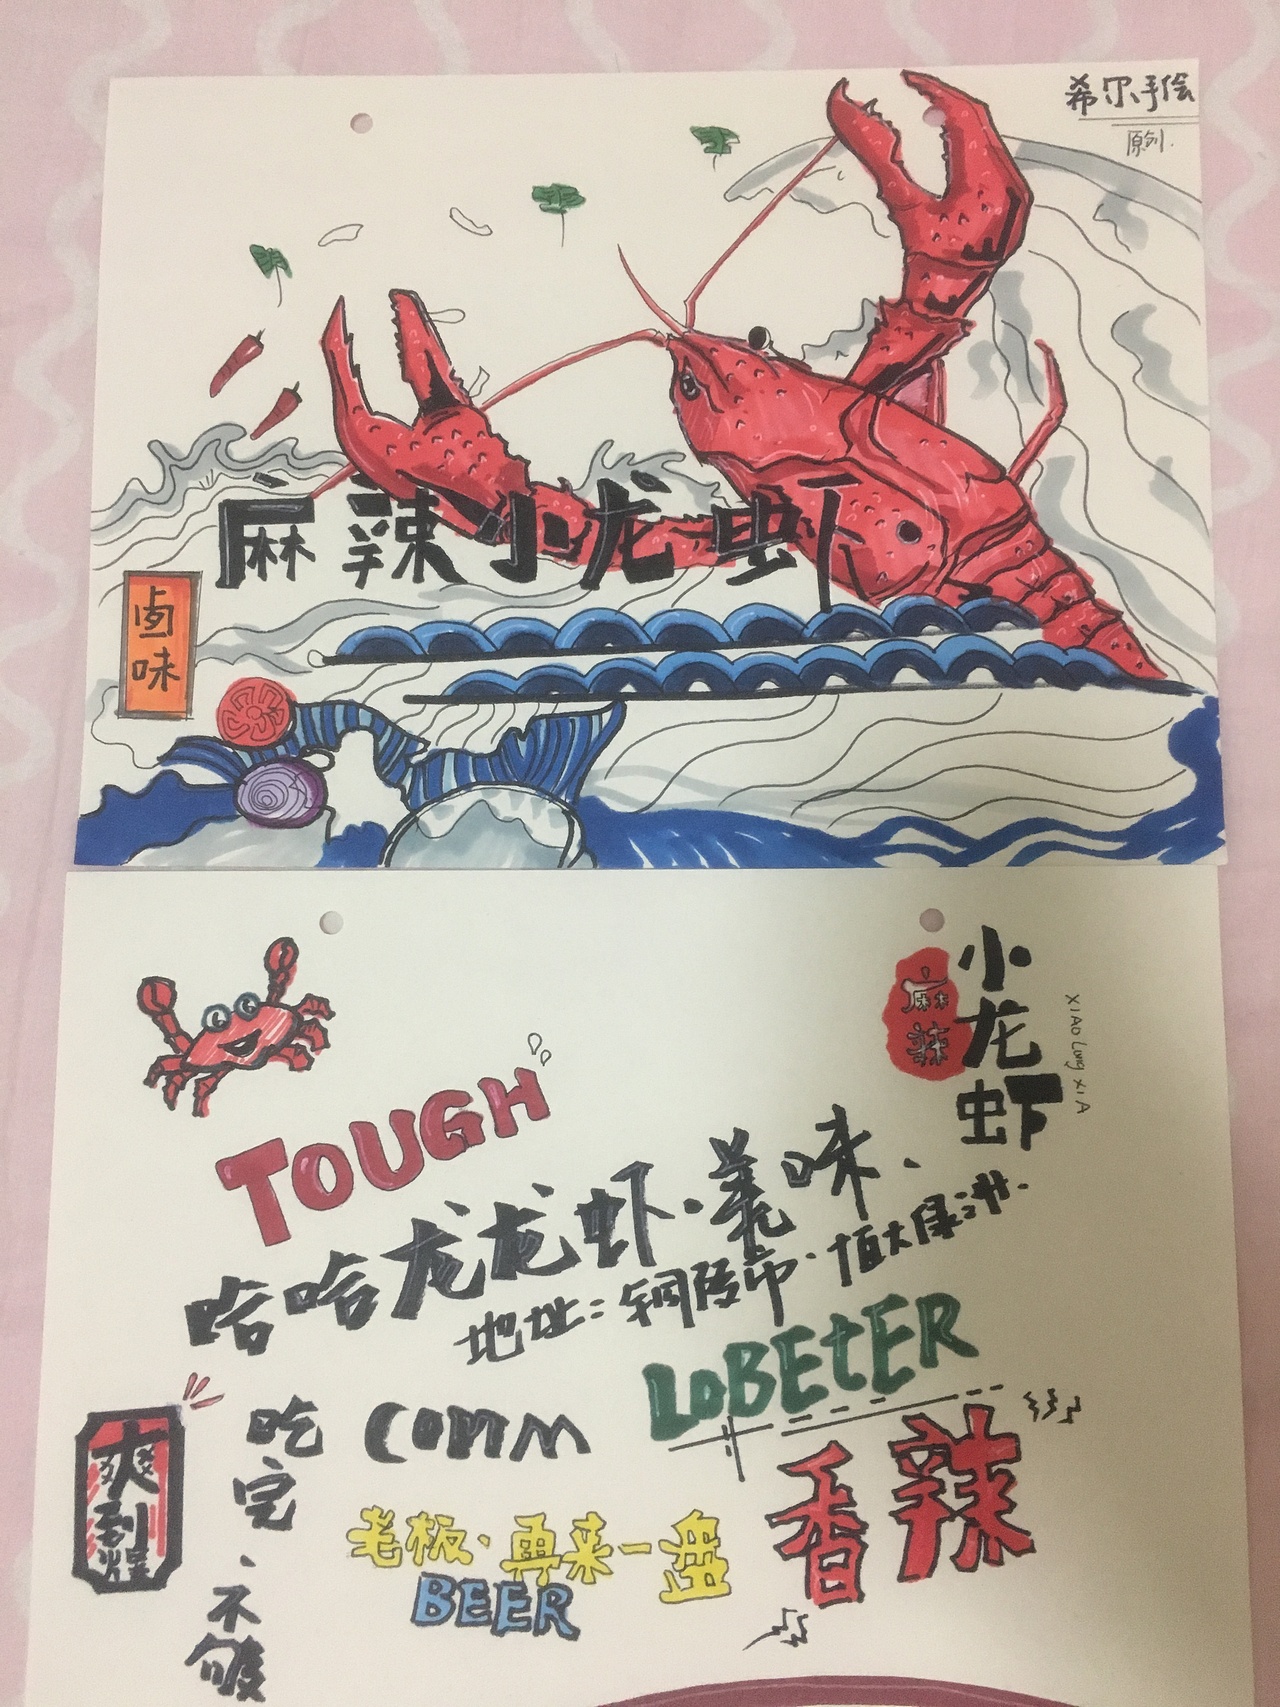 希尔手绘
原创.
麻辣小龙虾
卤味
小龙虾
麻辣
XIAO Lung XIA
TOUGH
哈哈龙龙虾·美味.
地址:铜陵市·恒大绿洲.
LOBEtER
爽到
吃完、不够
COMM
香辣
老板·再来一盘
BEER